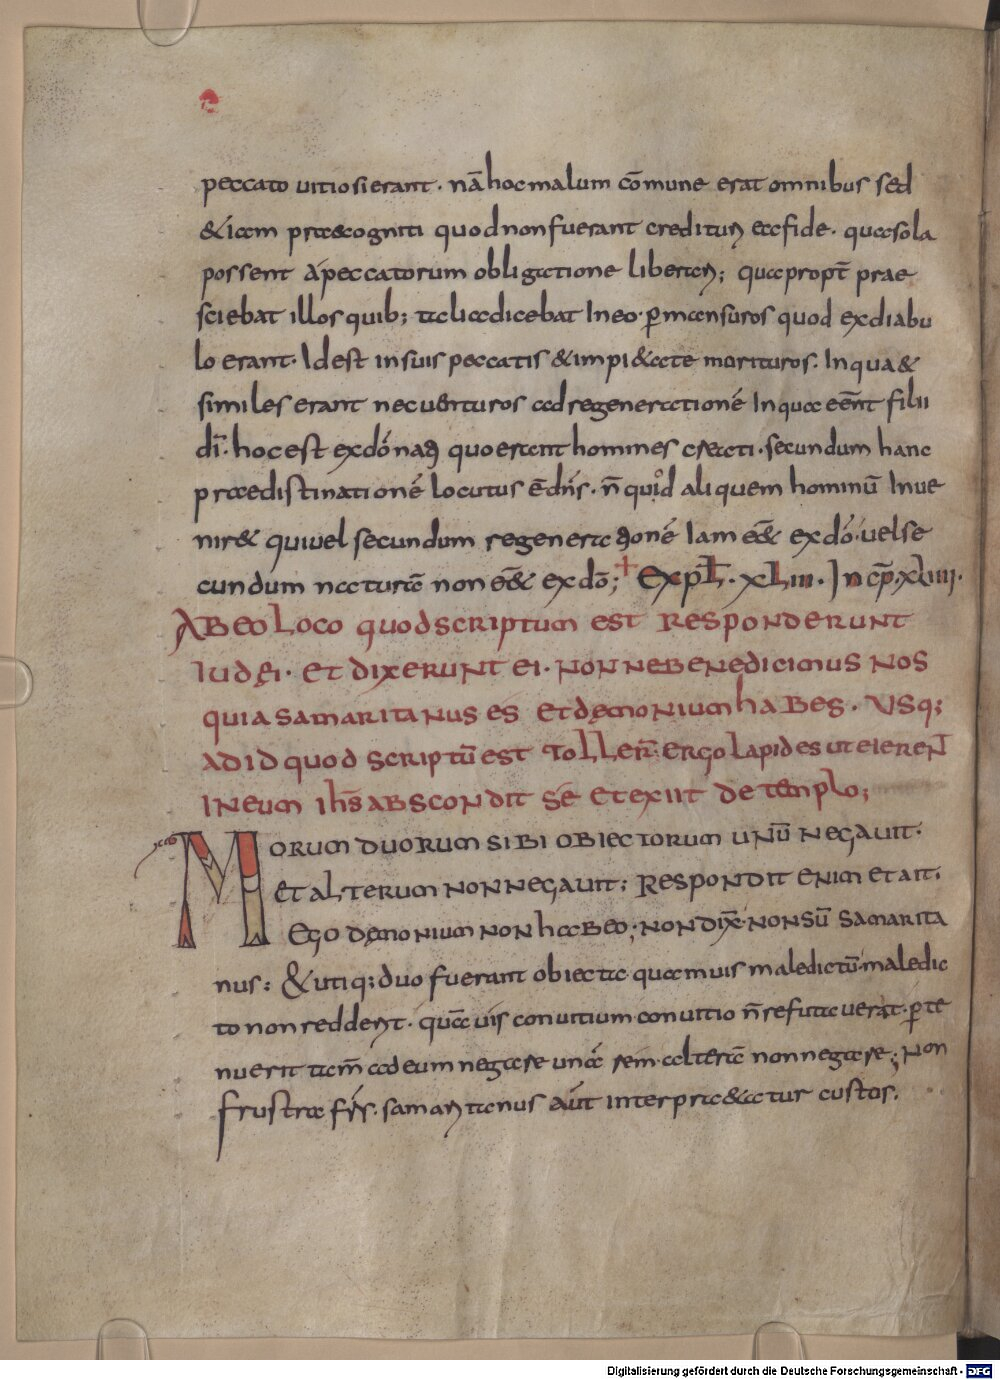 peccato uitiosi erant · nā hoc malum cōmune erat omnibus sed
& iam praecogniti quod non fuerant credituri ea fide · qua sola
possent a peccatorum obligatione liberari; qua propt̄ prae
sciebat illos quib; talia dicebat In eo · p̄mansuros quod ex diabu
lo erant · Id est in suis peccatis & impi&ate morituros · In qua &
similes erant nec uenturos ad regenerationē In qua eēnt filii
dī · hoc est ex dō nati quo erant homines creati · secundum hanc
praedistinationē locutus ē dn̄s · n̄ quod aliquem hominū Inue
nir& qui uel secundum regenerationē Iam eē& ex dō · uel se
cundum naturā non eē& ex dō; Expl · xLIII · Incp̄ · xLIIII ·
AB EO LOCO quod scriptum est Responderunt
Iudęi · et dixerunt ei · Non ne benedicimus nos
quia samaritanus es et dęmonium habes · usq;
ad id quod scriptū est Tollert̄ ergo lapides ut eIerent
In eum ih̄s abscondit se et exiit de templo;
MORUM duorum sibi obiectorum unū negauit ·
et alterum non negauit: Respondit enim et ait ·
Ego dęmonium non habeo; non dix̄ · non sū samarita
nus: & utiq; duo fuerant obiecta quamuis maledictū maledic
to non redderet · quāuis conuitium conuitio n̄ refutauerat · p̄te
nuerit tam̄ ad eum negare unā rem · alterā non negare; Non
frustra frs̄ · samaritanus aūt interpra&atur custos ·